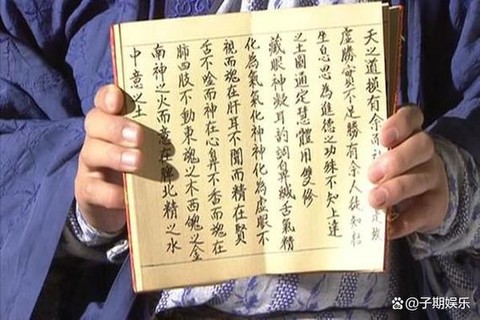 天之道損有余
虛勝實不足勝有余人徒知枯
坐息思為進德之功殊不知上達
之士圓通定慧體用雙修
藏眼神凝耳韵調鼻緘舌氣精
化為氣氣化神神化為虛眼不
視而魂在肝耳不聞而精在賢
舌不唫而神在心鼻不香而魂在
師四肢不動東魂之木西魄之金
南神之火而意在脾北精之水
中意之土
子期娱乐